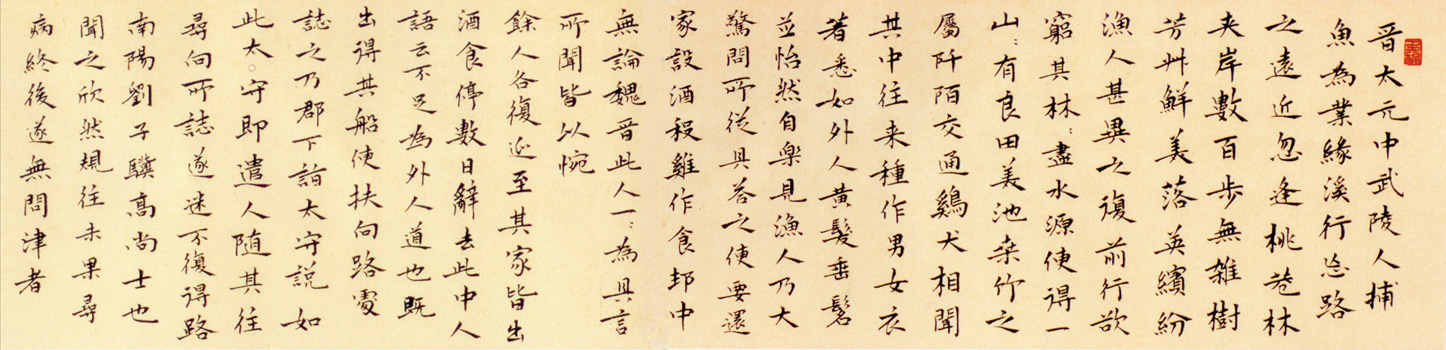 晉太元中武陵人捕
魚為業緣溪行忘路
之遠近忽逢桃花林
夾岸數百步無雜樹
芳艸鮮美落英繽紛
漁人甚異之復前行欲
窮其林:盡水源便得一
山:有良田美池桑竹之
屬阡陌交通鷄犬相聞
其中往来種作男女衣
著悉如外人黄髮垂髫
並怡然自樂見漁人乃大
驚問所從具答之便要還
家設酒殺雞作食邨中
無論魏晉此人一:為具言
所聞皆以惋
餘人各復延至其家皆出
酒食停數日辭去此中人
語云不足為外人道也既
出得其船便扶向路處
誌之乃郡下詣太守説如
此太。守即遣人随其往
尋向所誌遂迷不復得路
南陽劉子驥高尚士也
聞之欣然規往未果尋
病終後遂無問津者